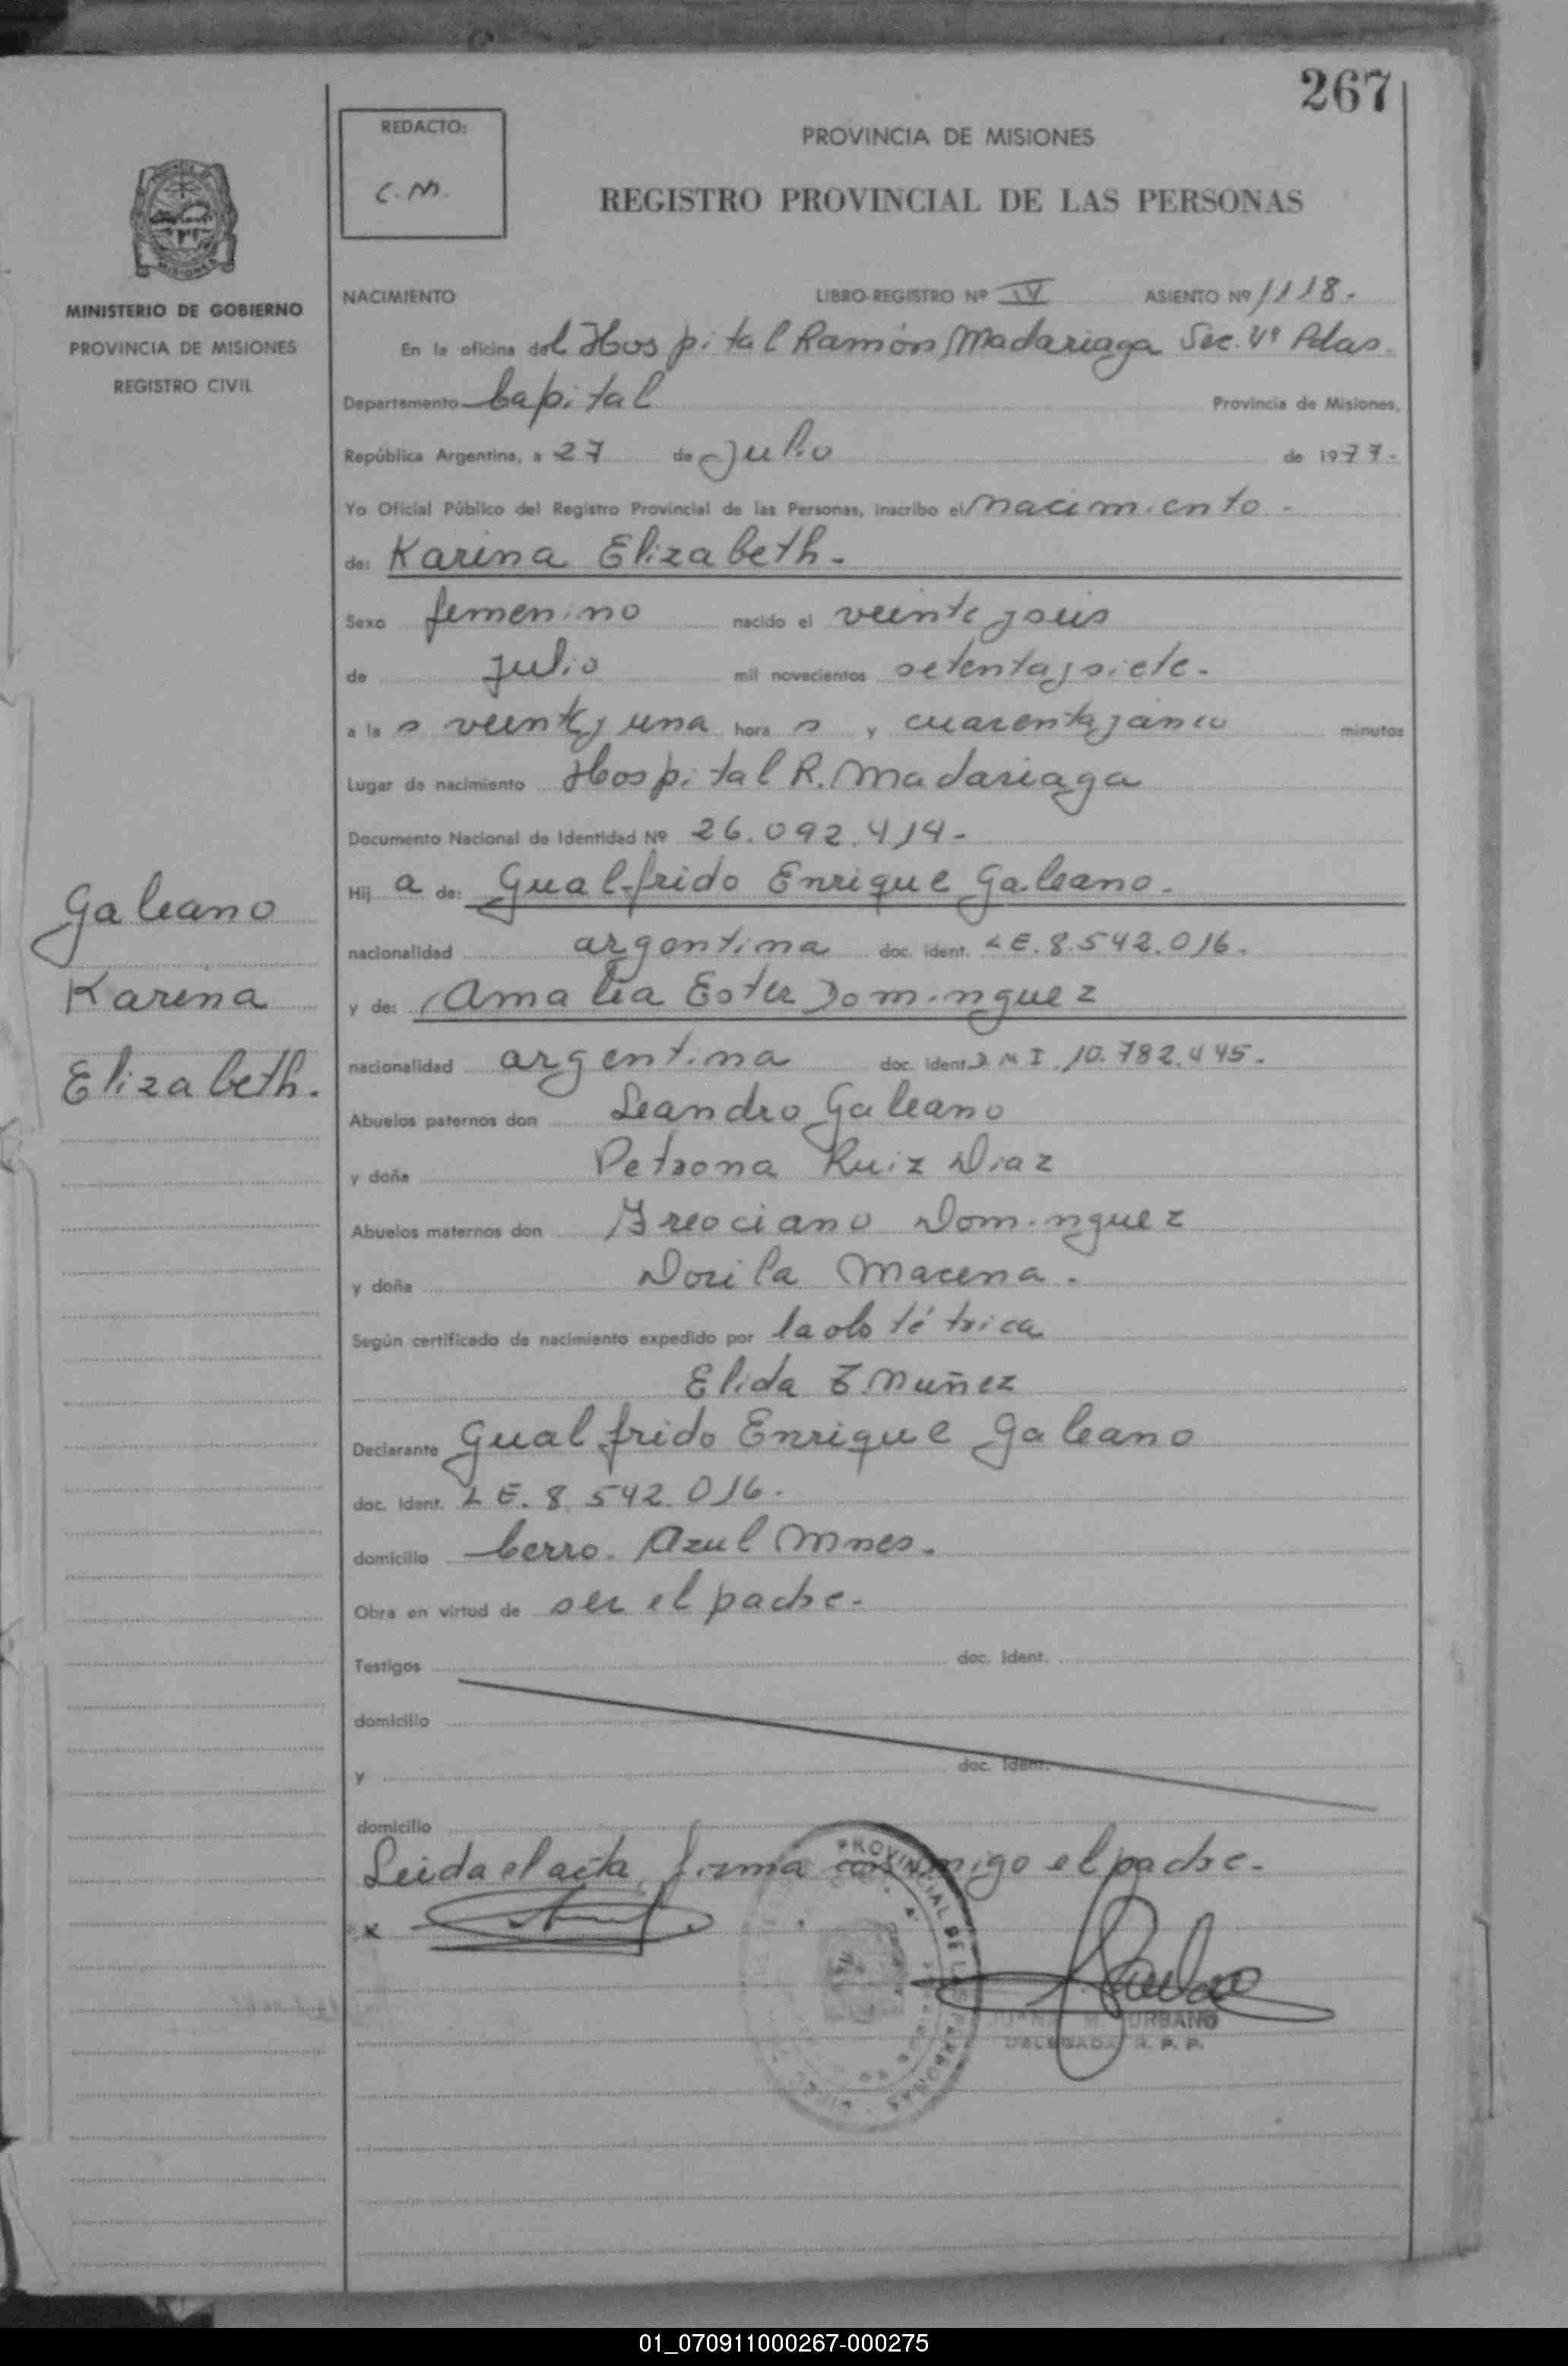 267
REDACTO:
C.M.
PROVINCIA DE MISIONES
REGISTRO PROVINCIAL DE LAS PERSONAS
MISIONES
MINISTERIO DE GOBIERNO
PROVINCIA DE MISIONES
REGISTRO CIVIL
NACIMIENTO LIBRO-REGISTRO Nº IV ASIENTO Nº 1118.-
En la oficina del Hospital Ramón Madariaga Sec. 4ª Pdas.
Departamento Capital Provincia de Misiones,
República Argentina, a 27 de Julio de 1977.-
Yo Oficial Público del Registro Provincial de las Personas, inscribo el nacimiento -
de: Karina Elizabeth.-
Sexo femenino nacido el veinte y seis
de julio mil novecientos setenta y siete.-
a la s veinte y una hora s y cuarenta y cinco minutos
Lugar de nacimiento Hospital R. Madariaga
Documento Nacional de Identidad Nº 26.092.414-
Hij a de: Gualfrido Enrique Galeano.-
nacionalidad argentina doc. ident. LE. 8.542.016.
y de: Amalia Ester Dominguez
nacionalidad argentina doc. ident. D N I. 10.782.445.
Abuelos paternos don Leandro Galeano
y doña Petrona Ruiz Diaz
Abuelos maternos don Dominguez
y doña Dorila Macena.
Según certificado de nacimiento expedido por la obtétrica
Elida E. Nuñez
Declarante Gualfrido Enrique Galeano
doc. ident. LE. 8.542.016.
domicilio Cerro Azul Mnes.
Obra en virtud de ser el padre.-
Testigos doc. ident.
domicilio
y doc. ident.
domicilio
Leida el acta, firma conmigo el padre.-
x
PROVINCIAL DE LAS PERSONAS
JUANA M. URBANO
DELEGADA R. P. P.
Galeano
Karina
Elizabeth.
01_070911000267-000275